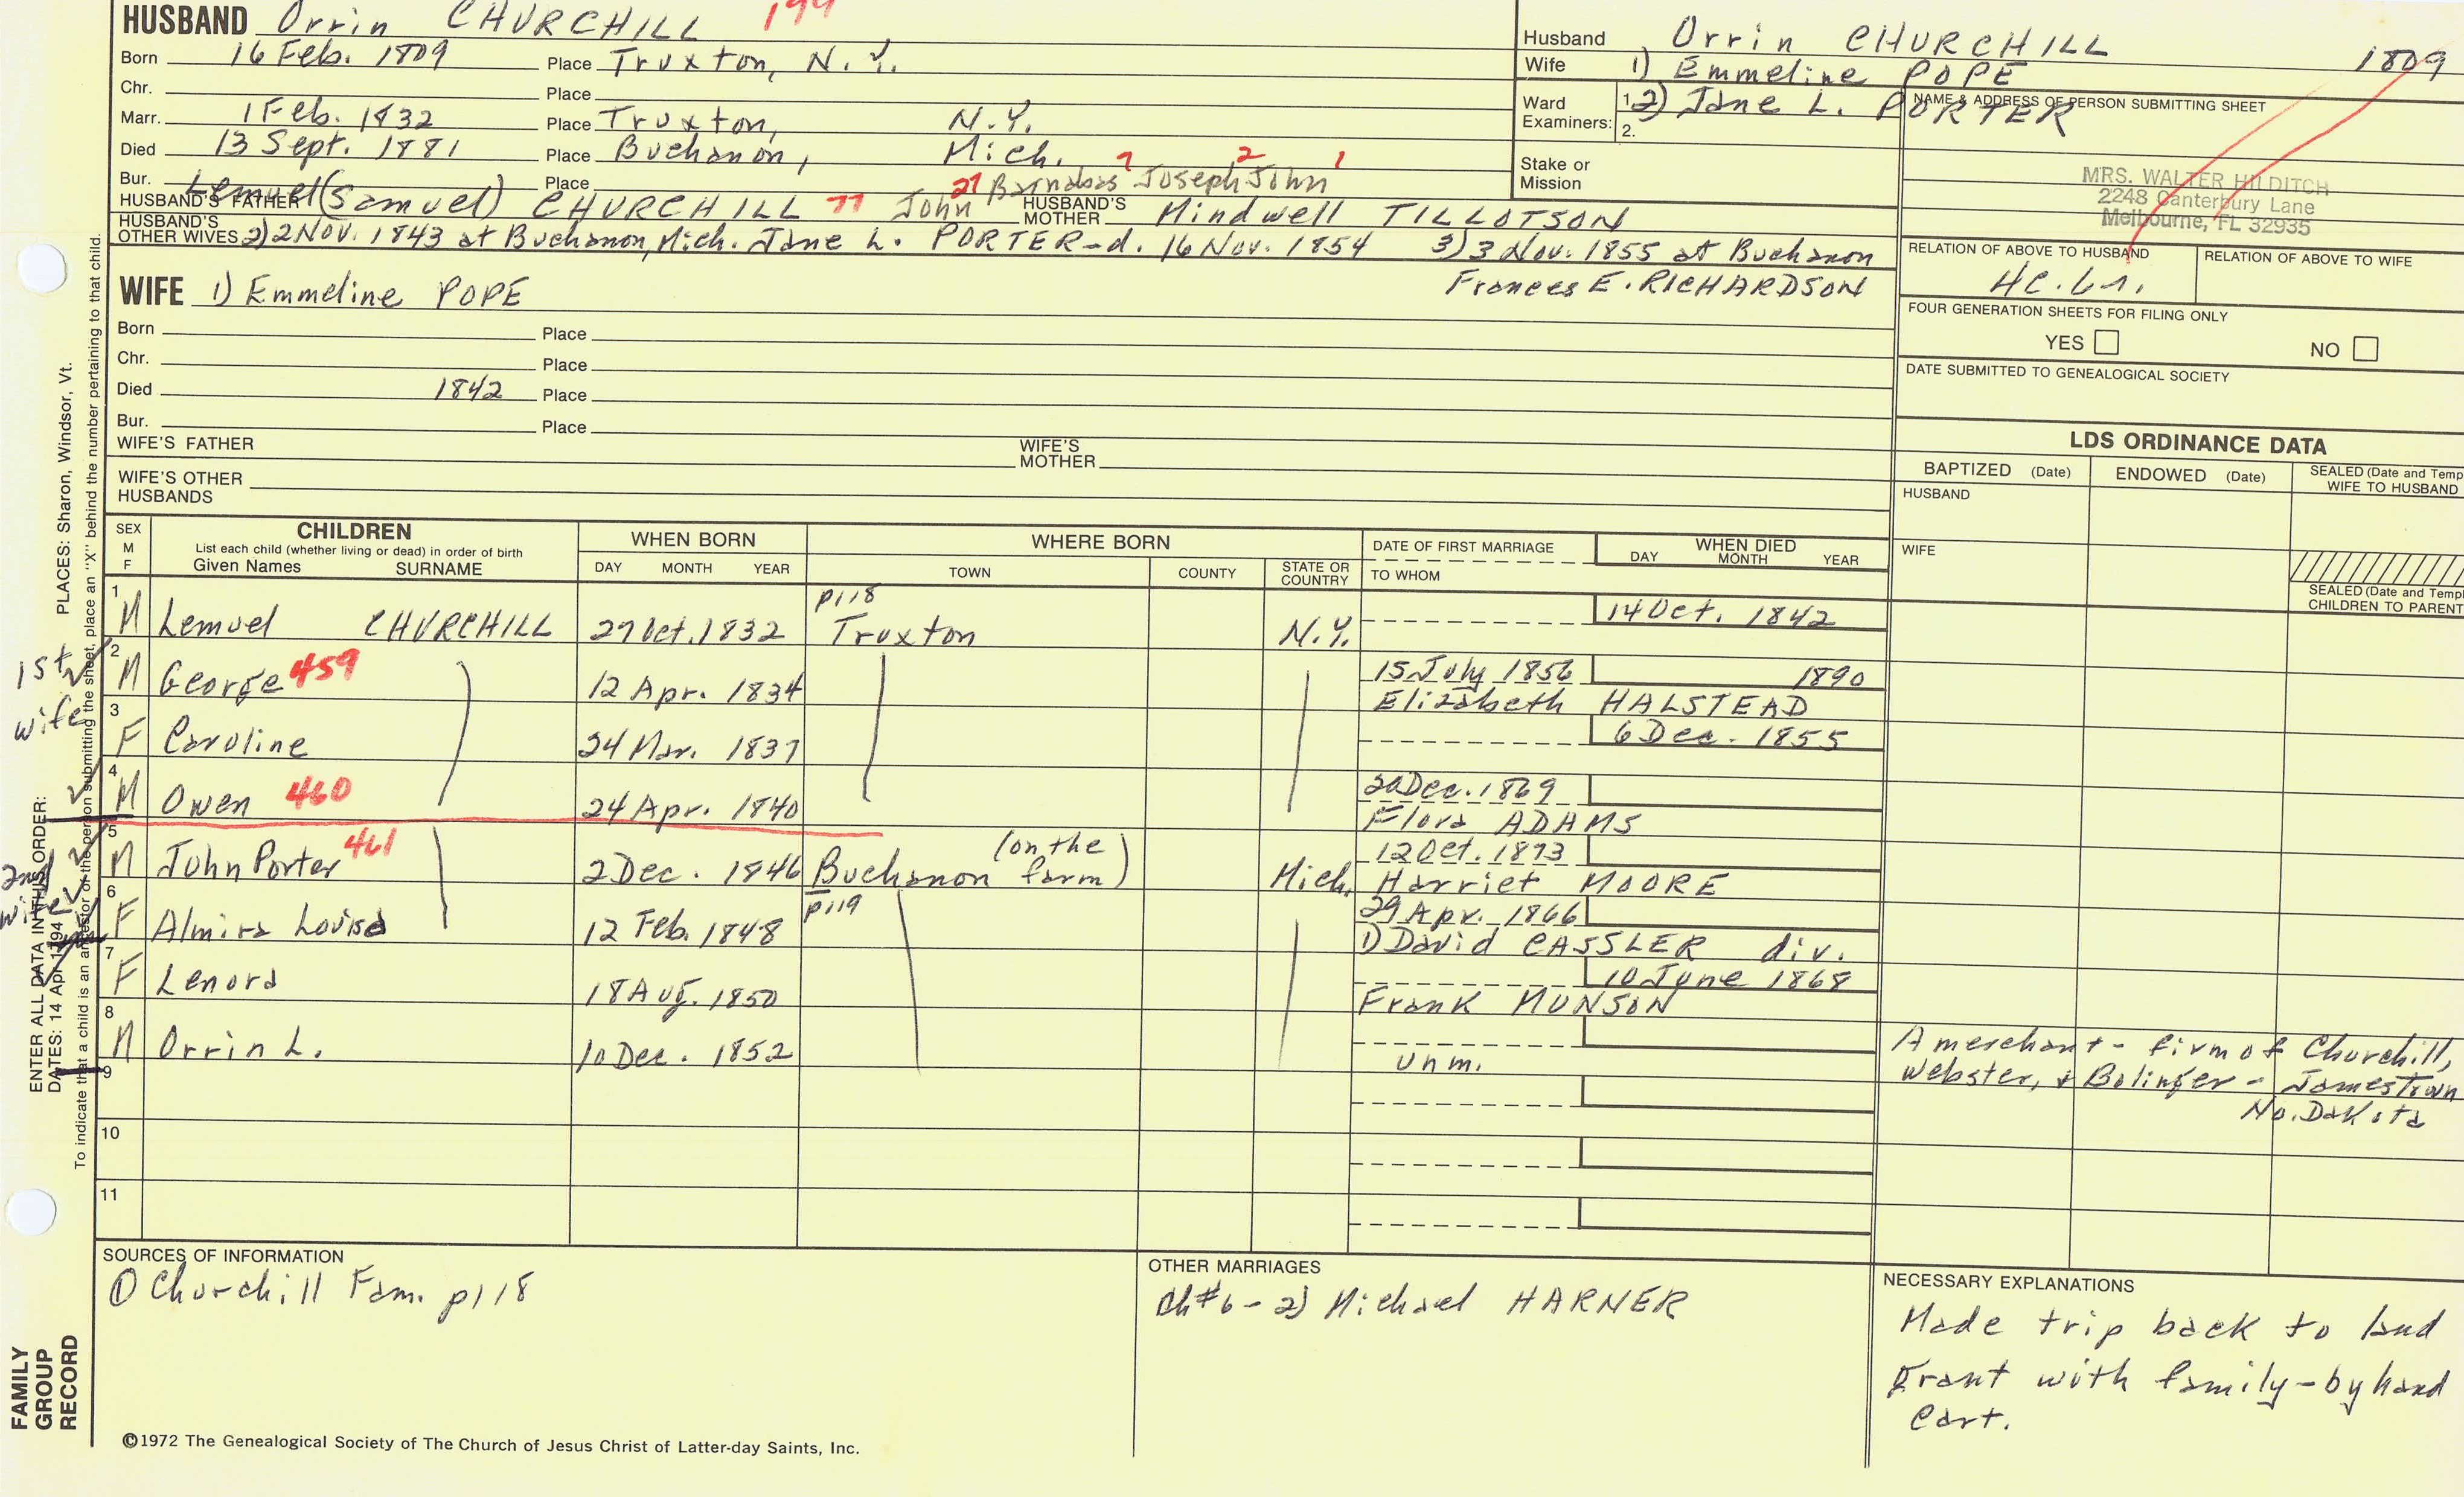 HUSBAND Orrin CHURCHILL 199
Born 16 Feb. 1809 Place Truxton, N.Y.
Chr. Place
Marr. 1 Feb. 1832 Place Truxton, N.Y.
Died 13 Sept. 1881 Place Buchanon, Mich.
Bur. Place
HUSBAND'S FATHER Lemuel (Samuel) CHURCHILL 77 John 27 Barnabas 7 Joseph 2 John 1 HUSBAND'S MOTHER Mindwell TILLOTSON
HUSBAND'S OTHER WIVES 2) 2 Nov. 1843 at Buchanon, Mich. Jane L. PORTER - d. 16 Nov. 1854 3) 3 Nov. 1855 at Buchanon
Frances E. RICHARDSON
WIFE 1) Emmeline POPE
Born Place
Chr. Place
Died 1842 Place
Bur. Place
WIFE'S FATHER WIFE'S MOTHER
WIFE'S OTHER HUSBANDS
Husband Orrin CHURCHILL 1809
Wife 1) Emmeline POPE
Ward Examiners: 1. 2) Jane L. PORTER
2.
Stake or Mission
NAME & ADDRESS OF PERSON SUBMITTING SHEET
MRS. WALTER HILDITCH
2248 Canterbury Lane
Melbourne, FL 32935
RELATION OF ABOVE TO HUSBAND RELATION OF ABOVE TO WIFE
FOUR GENERATION SHEETS FOR FILING ONLY
YES NO
DATE SUBMITTED TO GENEALOGICAL SOCIETY
LDS ORDINANCE DATA
BAPTIZED (Date) ENDOWED (Date) SEALED (Date and Temp
WIFE TO HUSBAND
HUSBAND
WIFE
SEALED (Date and Templ
CHILDREN TO PARENT
SEX M F CHILDREN
List each child (whether living or dead) in order of birth
Given Names SURNAME
WHEN BORN
DAY MONTH YEAR
WHERE BORN
TOWN COUNTY STATE OR COUNTRY
DATE OF FIRST MARRIAGE
TO WHOM
WHEN DIED
DAY MONTH YEAR
1 M Lemuel CHURCHILL 27 Oct. 1832 p118 Truxton N.Y. 14 Oct. 1842
1st wife
2 M George 459 12 Apr. 1834 15 July 1856 1890
Elizabeth HALSTEAD
3 F Caroline 24 Mar. 1837 6 Dec. 1855
4 M Owen 460 24 Apr. 1840 20 Dec. 1869
Flora ADAMS
2nd wife
5 M John Porter 461 2 Dec. 1846 Buchanon (on the farm) Mich. 12 Oct. 1873
Harriet MOORE
6 F Almira Louisa 12 Feb. 1848 p119 29 Apr. 1866
1) David CASSLER div.
7 F Lenora 18 Aug. 1850 10 June 1868
Frank MUNSON
8 M Orrin L. 10 Dec. 1852 unm.
A merchant - firm of Churchill,
Webster, & Bolinger - Jamestown
No. Dakota
9
10
11
SOURCES OF INFORMATION
① Churchill Fam. p118
OTHER MARRIAGES
Ch#6 - 2) Michael HARNER
NECESSARY EXPLANATIONS
Made trip back to land
grant with family - by hand
cart.
©1972 The Genealogical Society of The Church of Jesus Christ of Latter-day Saints, Inc.
FAMILY
GROUP
RECORD
ENTER ALL DATA IN THIS ORDER:
DATES: 14 Apr 1794 PLACES: Sharon, Windsor, Vt.
To indicate that a child is an ancestor of the person submitting the sheet, place an "X" behind the number pertaining to that child.